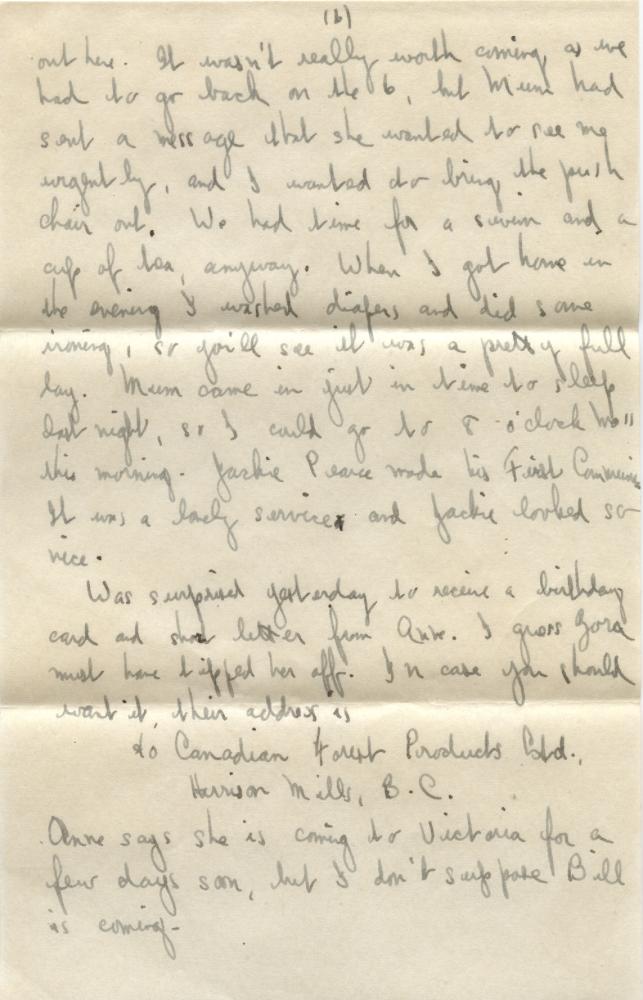 (6)
out here. It wasn't really worth coming, as we
had to go back on the 6, but Mum had
sent a message that she wanted to see me
urgently, and I wanted to bring the push
chair out. We had time for a swim and a
cup of tea, anyway. When I got home in
the evening I washed diapers and did some
ironing, so you'll see it was a pretty full
day. Mum came in just in time to sleep
last night, so I could go to 8 o'clock Mass
this morning. Jackie Pearce made his First Communion
It was a lovely service and Jackie looked so
nice.
Was surprised yesterday to receive a birthday
card and short letter from Anne. I guess
must have tipped her off. In case you should
want it, their address is
Canadian Forest Products Ltd.,
Harrison Mills, B.C.
Anne says she is coming to Victoria for a
few days soon, but I don't suppose Bill
is coming-